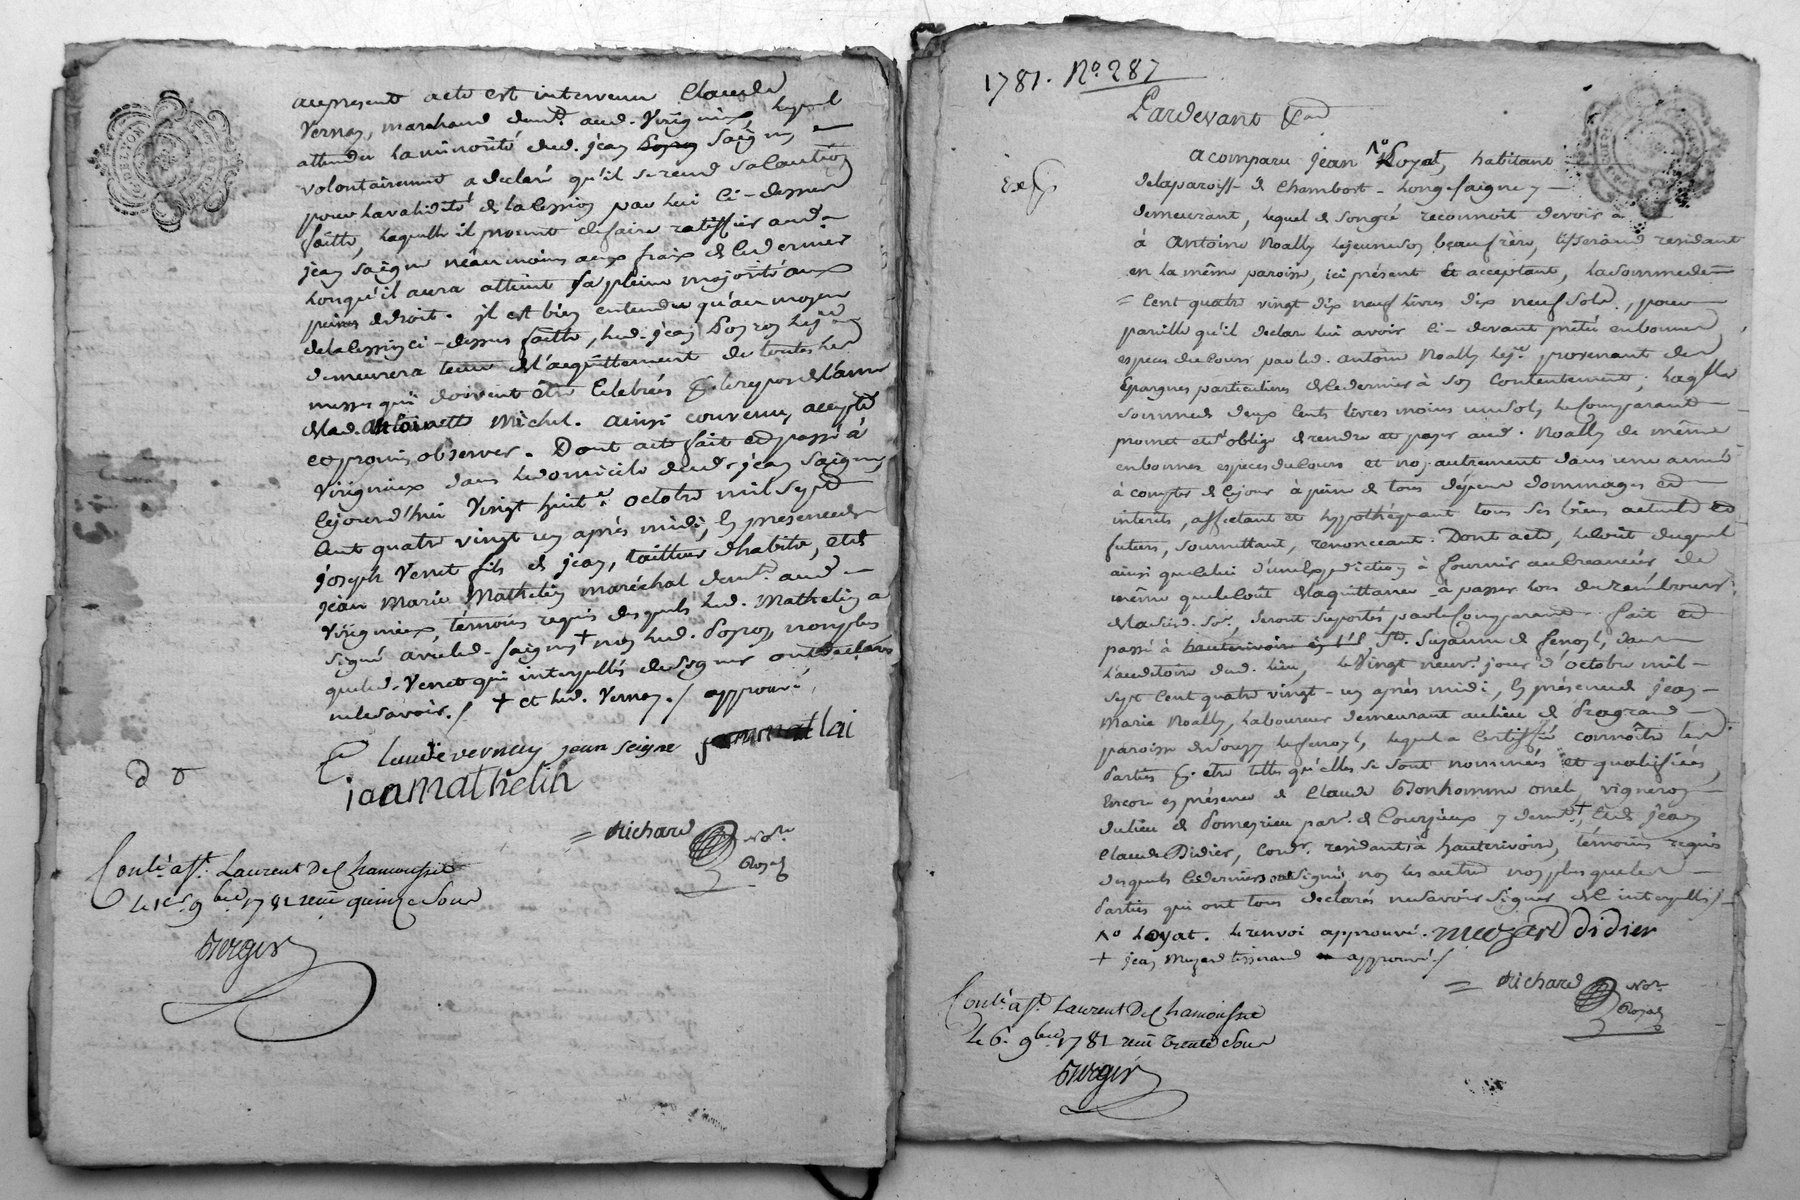 au present acte est intervenu Claude
Vernay, marchand demt. aud. Virigneux, lequel
attendu la minorité dud. jean saigne
volontairement a declaré qu'il se rend sa caution
pour la validité de la cession par lui ci-dessus
faitte, laquelle il promet de faire ratiffier aud.
jean saigne néanmoins aux fraix de ce dernier
lorsqu'il aura atteint sa pleine majorité aux
peines de droit. il est bien entendu qu'au moyen
de la cession ci-dessus faitte, led. jean
demeurera tenu de l'acquittement de toutes les
messes qui doivent être celebrées pr. le repos de l'ame
de lad. antoinette Michel. ainsi convenu, accepté
et promis observer. Dont acte fait et passé à
Virigneux dans le domicile dud. jean saigne,
cejourd'hui vingt huite. octobre mil sept
cent quatre vingt un après midi, en presence de
joseph Venet fils de jean, tailleur d'habits, et de
jean Marie Mathelin maréchal demt. aud.
Virigneux, témoins requis desquels led. Mathelin a
signé avec led. saigne + non led. non plus
que led. Venet qui interpellés de signer ont declaré
ne le savoir ./ + et led. Vernay ./ approuvé,
Claude vernay jean seigne
janmathelin
= Richard Nore.
Royal
Conlé. a St. Laurent De Chamousset
Le 1er. 9bre 1781 reçu quinze sous
Verger
1781. No. 287
Pardevant
a comparu jean No Loyat, habitant
de la paroisse de Chambost-Longesaigne y
demeurant, lequel de son gré reconnoit devoir à
à antoine Noally lejeune son beaufrère, tisserand residant
en la même paroisse, ici présent et acceptant, la somme de
= Cent quatre vingt dix neuf livres dix neuf sols, pour
pareille qu'il declare lui avoir ci-devant prété en bonnes
especes du cours par led. antoine Noally leje. provenant des
épargnes particulieres de ce dernier à son contentement; laqlle
somme de deux cents livres moins un sol, le comparant
promet et s'oblige de rendre et payer aud. Noally de même
en bonnes especes du cours et non autrement dans une année
à compter de ce jour à peine de tous dépens dommages et
interets, affectant et hypothéquant tous ses biens actuels et
futurs, soumettant, renonceant. Dont acte, le coût duquel
ainsi que celui d'une expedition à fournir au creancier de
même que le coût de la quittance à passer lors du rembourst.
de lasud. soe. seront suportés par le comparant. fait et
passé à Ste. Suzanne de fenoyl, dans
l'auditoire dud. lieu, le vingt neuve. jour d'octobre mil
sept cent quatre vingt-un après midi, en présence de jean
Marie Noally, laboureur demeurant au lieu de
paroisse de Souzy le fenoyl, lequel a certiffié connoître les
Parties pr. etre telles qu'elles se sont nommées et qualifiées,
encore en présence de Claude Bonhomme vigneron
du lieu de Pomeyrieu par. de Courzieux y demt. + et de jean
Claude Didier, Cordr. residant à hauterivoire, témoins requis
desquels ce dernier a signé non les autres non plus que les
Parties qui ont tous declarés ne savoir signer de ce interpellés ./
No Loyat. le renvoi approuvé. Didier
+ jean tisserand approuvé ./
= Richard Nore.
Royal
Conlé. a St. Laurent De Chamousset
Le 6. 9bre 1781 reçu Trente sous
Verger